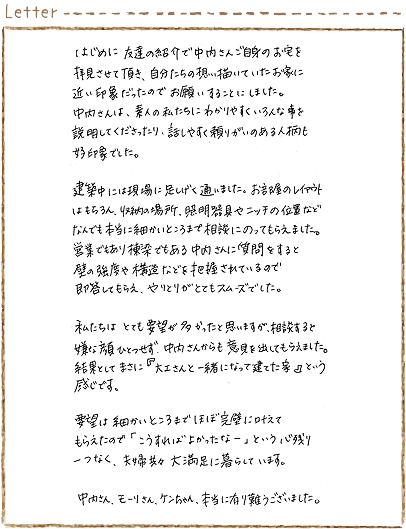 Letter
はじめに 友達の紹介で中内さんご自身のお宅を
拝見させて頂き、自分たちの想い描いていたお家に
近い印象だったのでお願いすることにしました。
中内さんは、素人の私たちにわかりやすくいろんな事を
説明してくださったり、話しやすく頼りがいのある人柄も
好印象でした。
建築中には現場に足しげく通いました。お部屋のレイアウト
はもちろん、収納の場所、照明器具やニッチの位置など
なんでも本当に細かいところまで相談にのってもらえました。
営業でもあり棟梁でもある中内さんに質問をすると
壁の強度や構造などを把握されているので
即答してもらえ、やりとりがとてもスムーズでした。
私たちは とても要望が多かったと思いますが、相談すると
嫌な顔ひとつせず、中内さんからも意見を出してもらえました。
結果としてまさに『大工さんと一緒になって建てた家』という
感じです。
要望は細かいところまでほぼ完璧に叶えて
もらえたので「こうすればよかったなー」という心残り
一つなく、夫婦共々 大満足に暮らしています。
中内さん、モーリさん、ケンちゃん、本当に有り難うございました。